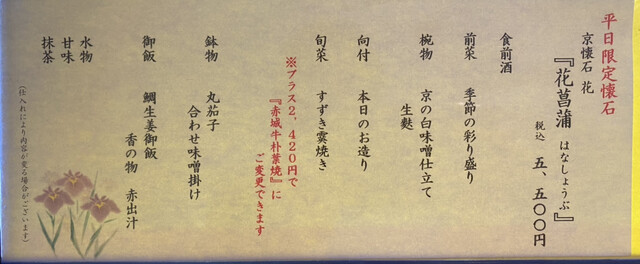 平日限定懐石
京懐石 花
『花菖蒲 はなしょうぶ』
税込 五、五〇〇円
食前酒
前菜 季節の彩り盛り
椀物 京の白味噌仕立て
生麩
向付 本日のお造り
旬菜 すずき雲焼き
※プラス2,420円で
『赤城牛朴葉焼』に
ご変更できます
鉢物 丸茄子
合わせ味噌掛け
御飯 鯛生姜御飯
香の物 赤出汁
水物
甘味
抹茶
(仕入れにより内容が変る場合がございます)